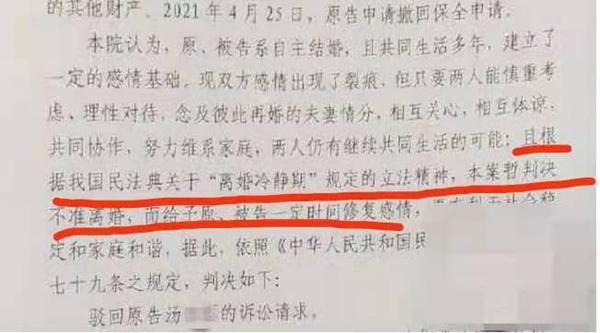 的其他财产。2021年4月25日，原告申请撤回保全申请。
本院认为，原、被告系自主结婚，且共同生活多年，建立了
一定的感情基础。现双方感情出现了裂痕，但只要两人能慎重考
虑、理性对待，念及彼此再婚的夫妻情分，相互关心，相互体谅，
共同协作，努力维系家庭，两人仍有继续共同生活的可能；且根
据我国民法典关于“离婚冷静期”规定的立法精神，本案暂判决
不准离婚，而给予原、被告一定时间修复感情，
定和家庭和谐，据此，依照《中华人民共和国民
七十九条之规定，判决如下：
驳回原告汤 的诉讼请求。